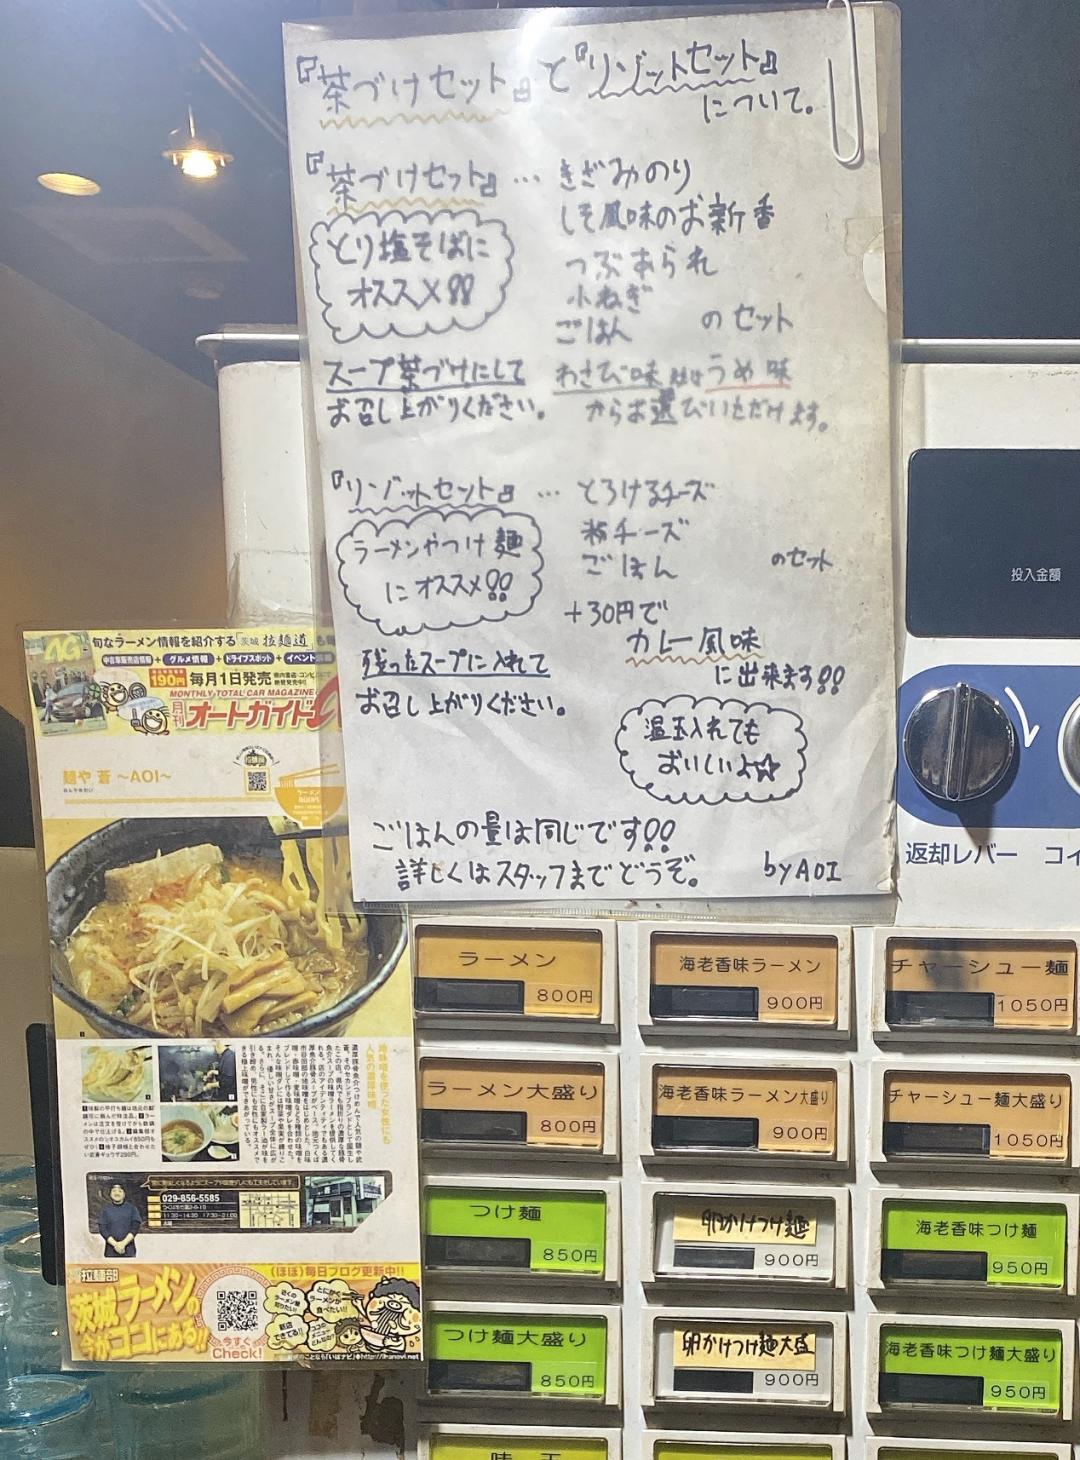 『茶づけセット』と『リゾットセット』
について。
『茶づけセット』… きざみのり
しそ風味のお新香
つぶあられ
小ねぎ
ごはん のセット
とり塩そばに
オススメ!!
スープ茶づけにして
お召し上がりください。
わさび味 又は うめ味
からお選びいただけます。
『リゾットセット』… とろけるチーズ
粉チーズ
ごはん のセット
ラーメンやつけ麺
にオススメ!!
+30円で
カレー風味
に出来ます!!
残ったスープに入れて
お召し上がりください。
温玉入れても
おいしいよ☆
ごはんの量は同じです!!
詳しくはスタッフまでどうぞ。
by AOI
投入金額
返却レバー コイ
旬なラーメン情報を紹介する「茨城 拉麺道」も毎
中古車販売店情報 + グルメ情報 + ドライブスポット + イベント
190円 毎月1日発売
MONTHLY TOTAL CAR MAGAZINE
月刊 オートガイド
麺や 蒼 〜AOI〜
029-856-5585
拉麺部
茨城ラーメンの
今がココにある!!
今すぐ
Check!
(ほぼ)毎日ブログ更新中!!
近くの
ラーメン屋
知りたい!!
とにかく
ラーメンが
食べたい!!
新店
できてる!!
ラーメン 800円
海老香味ラーメン 900円
チャーシュー麺 1050円
ラーメン大盛り 800円
海老香味ラーメン大盛り 900円
チャーシュー麺大盛り 1050円
つけ麺 850円
卵かけつけ麺 900円
海老香味つけ麺 950円
つけ麺大盛り 850円
卵かけつけ麺大盛 900円
海老香味つけ麺大盛り 950円
味玉